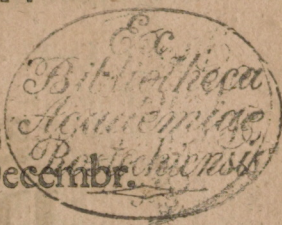 Ex
Bibliotheca
Academiae
Rostochiensis
ecembr.